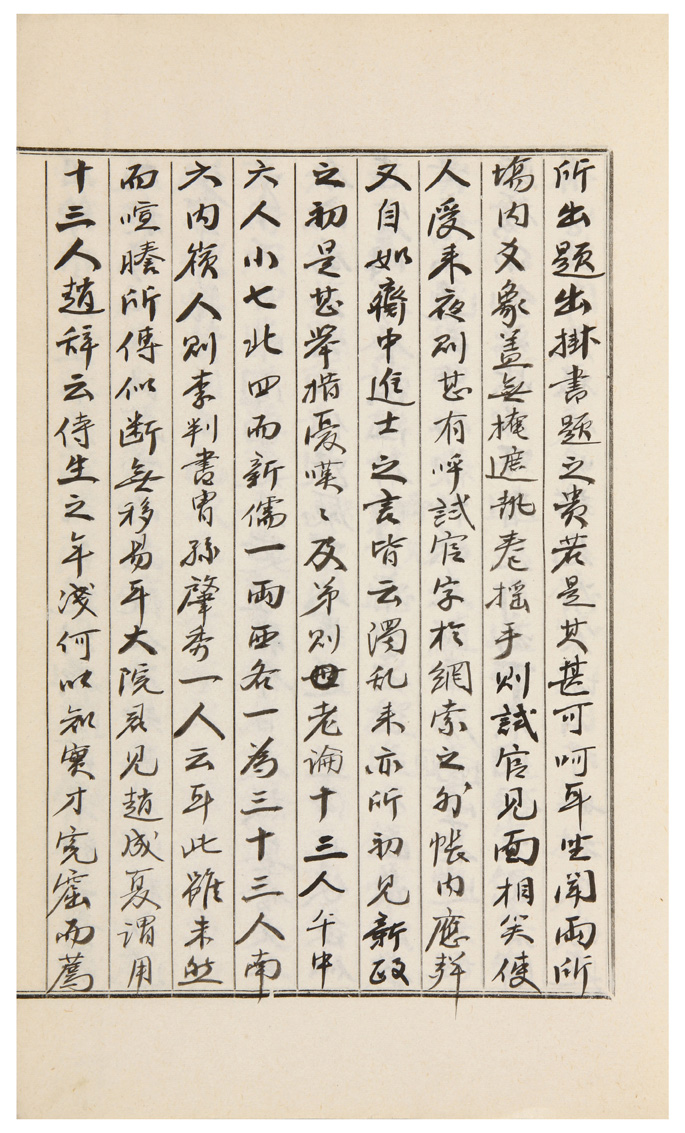 所出題出掛書題之貴若是其甚可呵耳坐閣兩所
場內爻象盖無掩遮執卷搖手則試官見面相笑使
人受來夜則甚有呼試官字於網索之外帳內應辭
又自如齋中進士之言皆云濁亂未亦所初見新政
之初是甚舉措憂嘆〻及第則母老論十三人午中
六人小七北四而新儒一兩西各一為三十三人南
六內嶺人則李判書胄孫肇秀一人云耳此雖未然
而喧騰所傳似斷無移易耳大院君見趙成夏謂用
十三人趙辞云侍生之年淺何以知實才完窟而薦